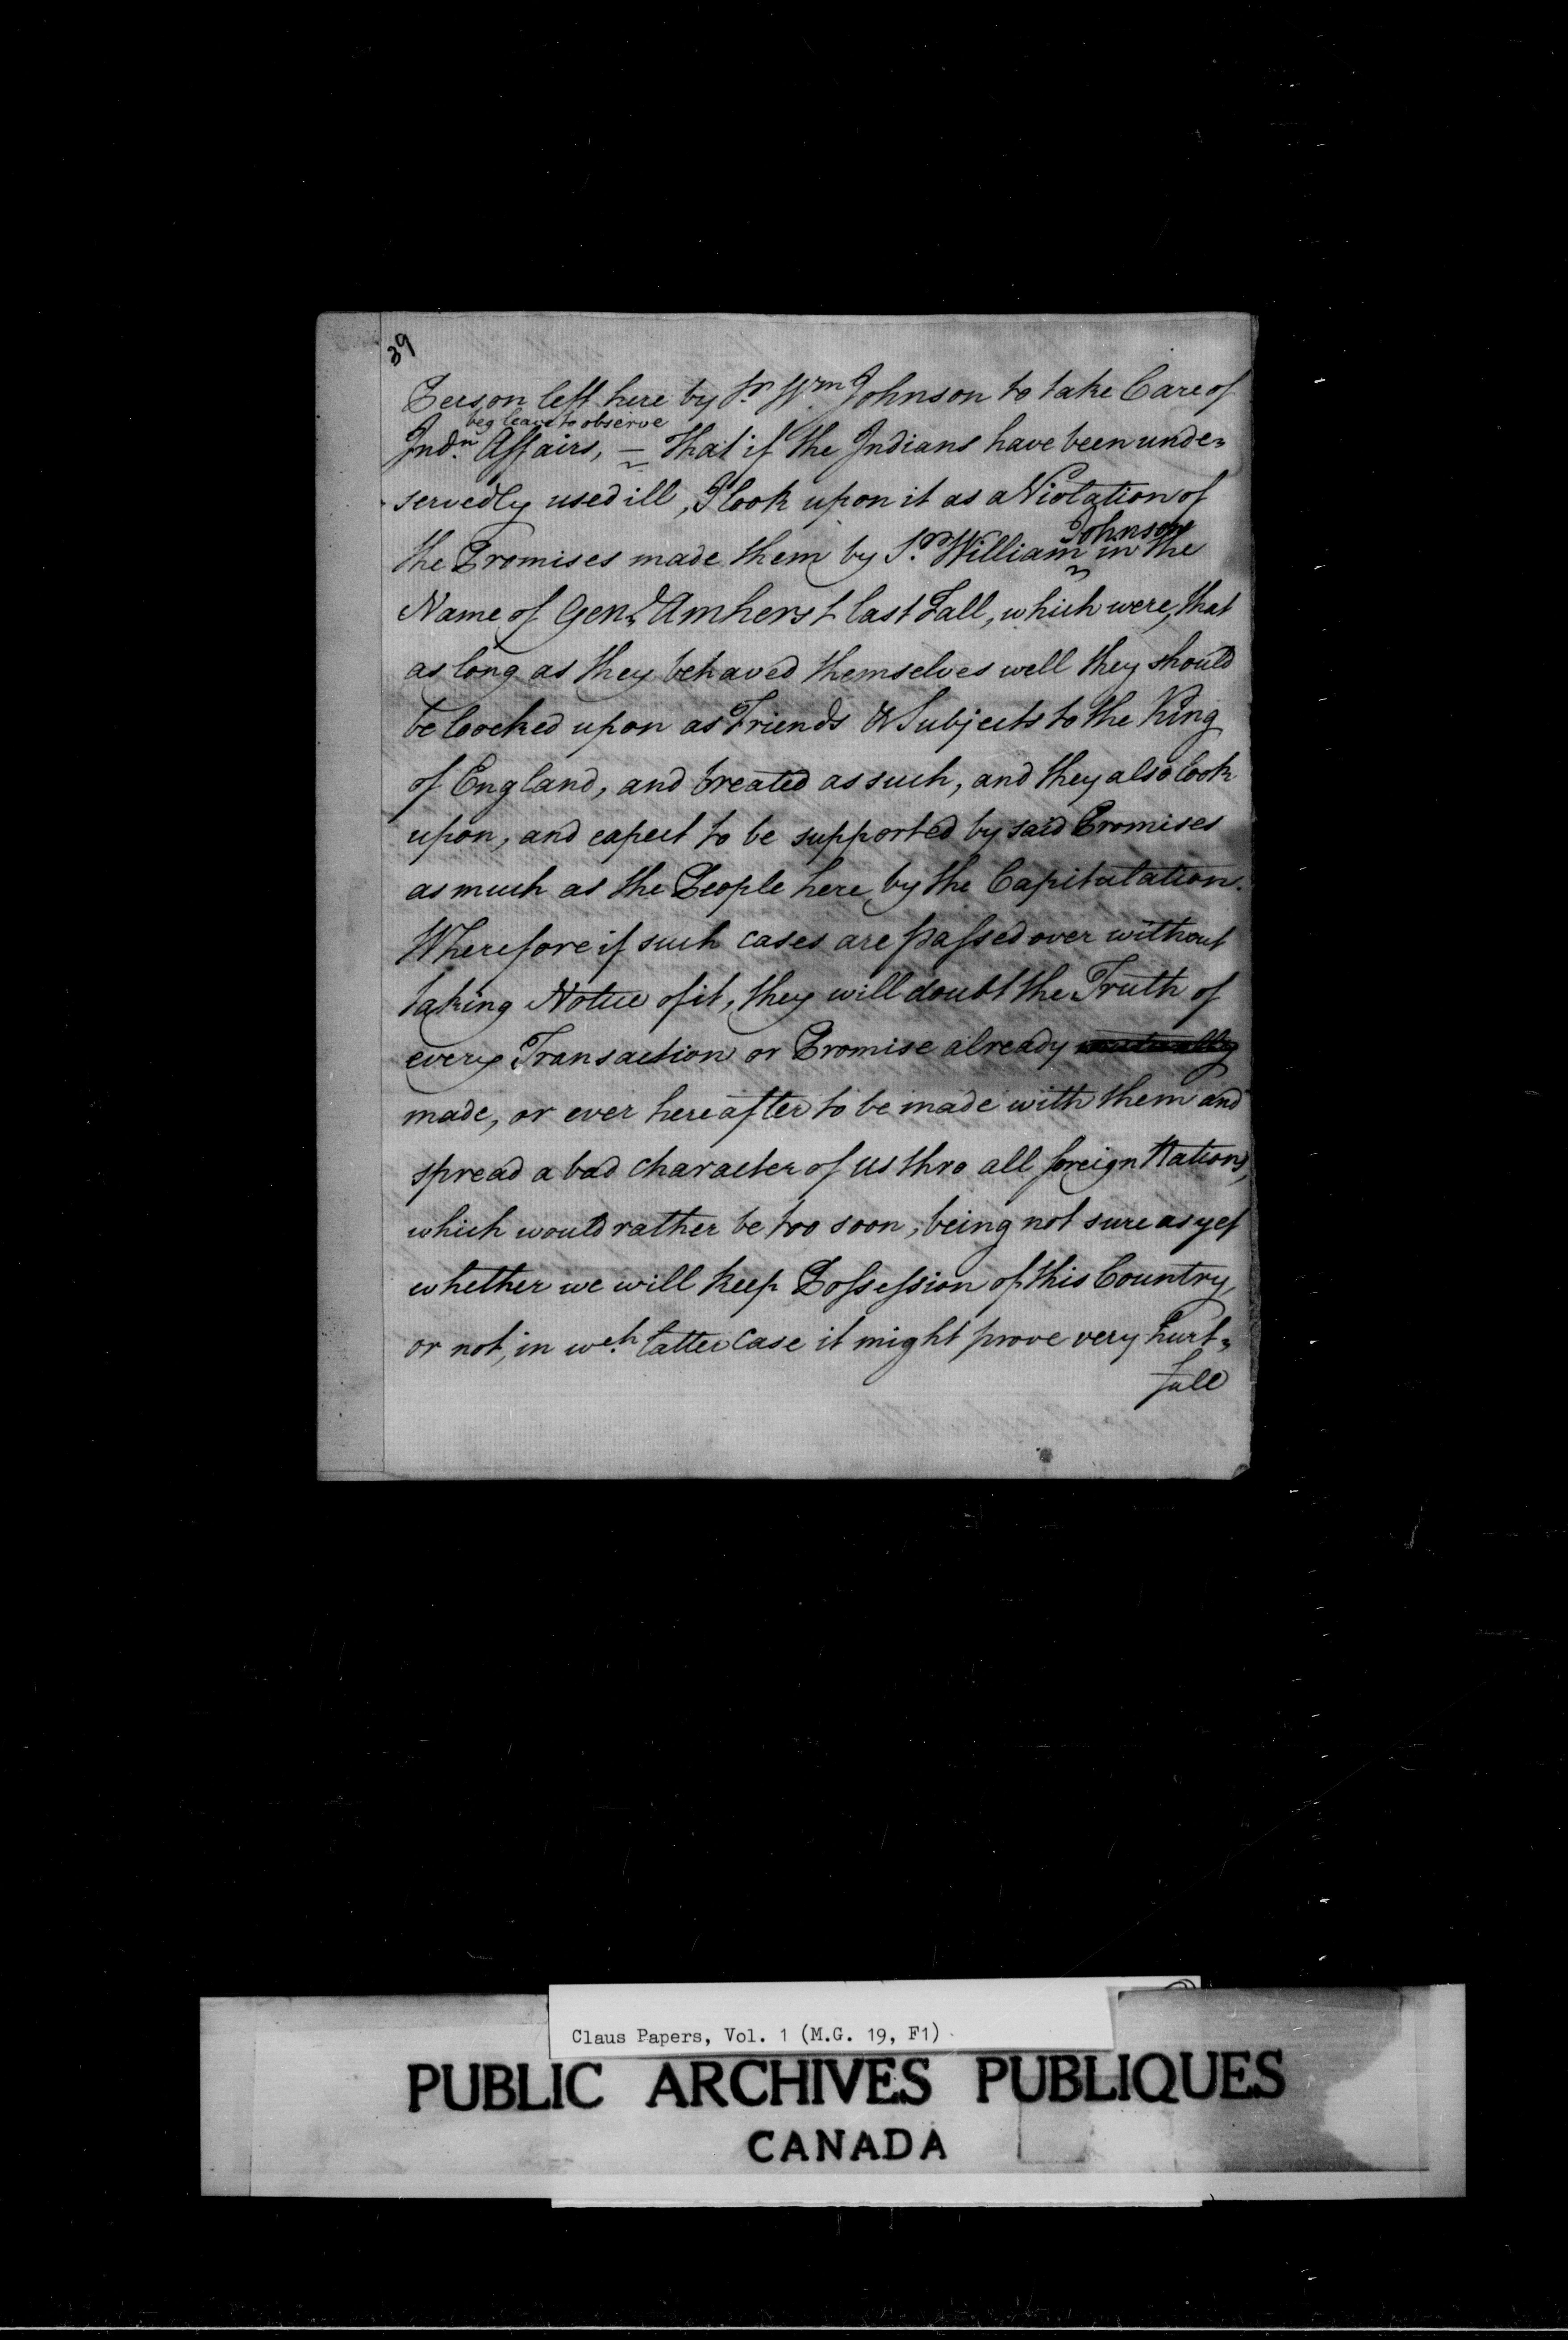 39
Person left here by Sr. Wm. Johnson to take Care of
beg leave to observe
Indn. Affairs, – That if the Indians have been unde=
servedly used ill, I look upon it as a Violation of
Johnson
the Promises made them by Sr. William in the
Name of Genl. Amherst last Fall, which were, that
as long as they behaved themselves well they should
be loocked upon as Friends & Subjects to the King
of England, and treated as such, and they also look
upon, and expect to be supported by said Promises
as much as the People here by the Capitulation.
Wherefore if such cases are passed over without
taking Notice of it, they will doubt the Truth of
every Transaction or Promise already
made, or ever hereafter to be made with them and
spread a bad character of us thro all foreign Nations,
which would rather be too soon, being not sure as yet
whether we will keep Possession of this Country,
or not, in wch. latter case it might prove very hurt=
full
Claus Papers, Vol. 1 (M.G. 19, F1)
PUBLIC ARCHIVES PUBLIQUES
CANADA